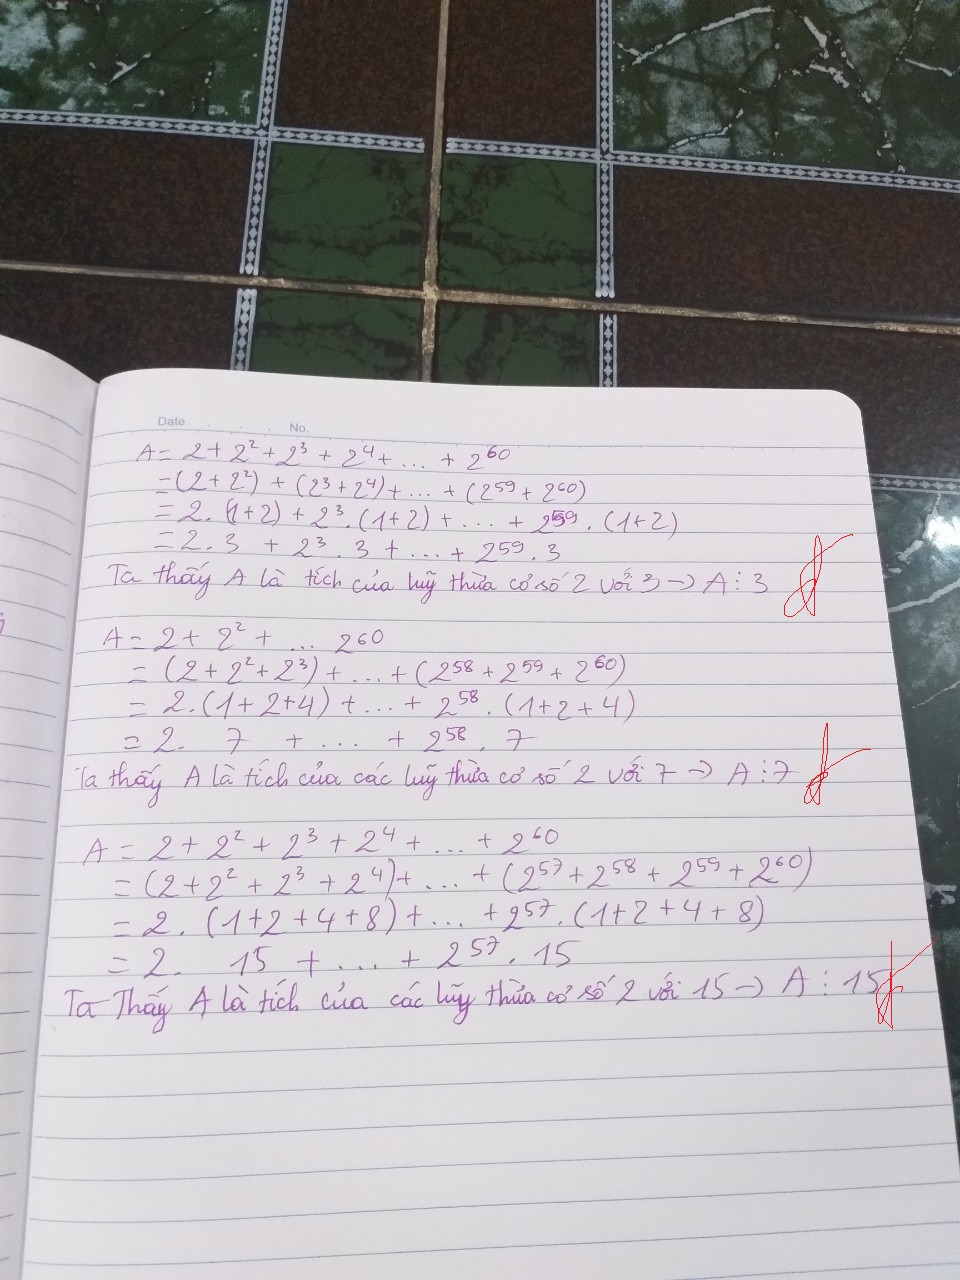 Date No.
A = 2 + 2² + 2³ + 2⁴ + ... + 2⁶⁰
= (2 + 2²) + (2³ + 2⁴) + ... + (2⁵⁹ + 2⁶⁰)
= 2. (1+2) + 2³. (1+2) + ... + 2⁵⁹. (1+2)
= 2.3 + 2³.3 + ... + 2⁵⁹.3
Ta thấy A là tích của luỹ thừa cơ số 2 với 3 → A ⋮ 3
A = 2 + 2² + ... 2⁶⁰
= (2 + 2² + 2³) + ... + (2⁵⁸ + 2⁵⁹ + 2⁶⁰)
= 2.(1+2+4) + ... + 2⁵⁸. (1+2+4)
= 2. 7 + ... + 2⁵⁸. 7
Ta thấy A là tích của các luỹ thừa cơ số 2 với 7 → A ⋮ 7
A = 2 + 2² + 2³ + 2⁴ + ... + 2⁶⁰
= (2+2² + 2³ + 2⁴) + ... + (2⁵⁷ + 2⁵⁸ + 2⁵⁹ + 2⁶⁰)
= 2. (1+2+4+8) + ... + 2⁵⁷. (1+2+4+8)
= 2. 15 + ... + 2⁵⁷. 15
Ta Thấy A là tích của các luỹ thừa cơ số 2 với 15 → A ⋮ 15